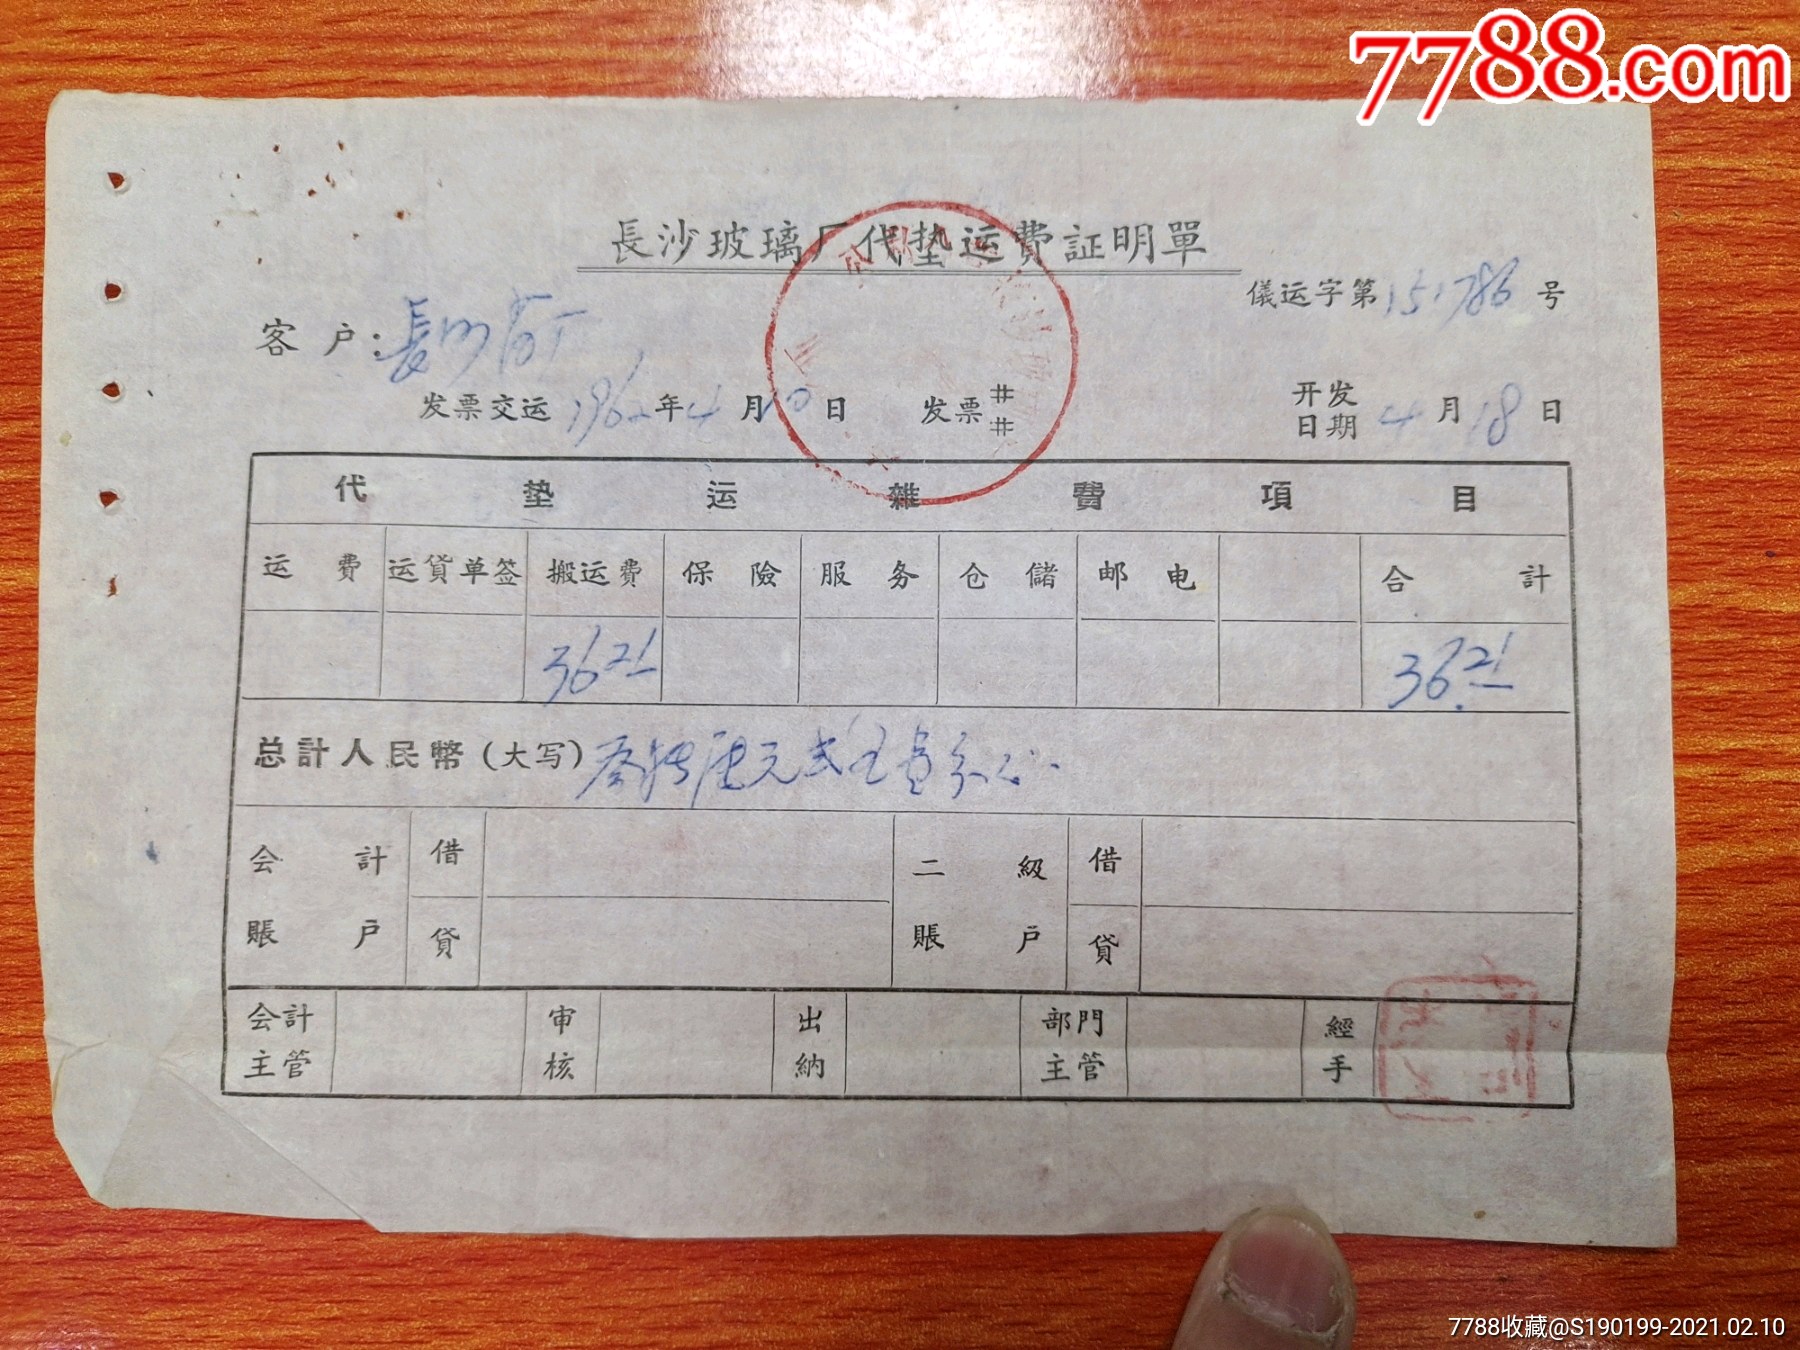 7788.com
長沙玻璃厂代垫运费証明單
儀运字第151786号
客户:長沙
发票交运1962年4月10日 发票## 开发日期4月18日
代垫运雜費項目
运費 运貨单签 搬运費 保險 服务 仓儲 邮电 合計
3621 3621
总計人民幣(大写)叁拾陆元贰角壹分
会計 借 二級 借
賬户 貸 賬户 貸
会計主管 审核 出納 部門主管 經手
7788收藏@S190199-2021.02.10